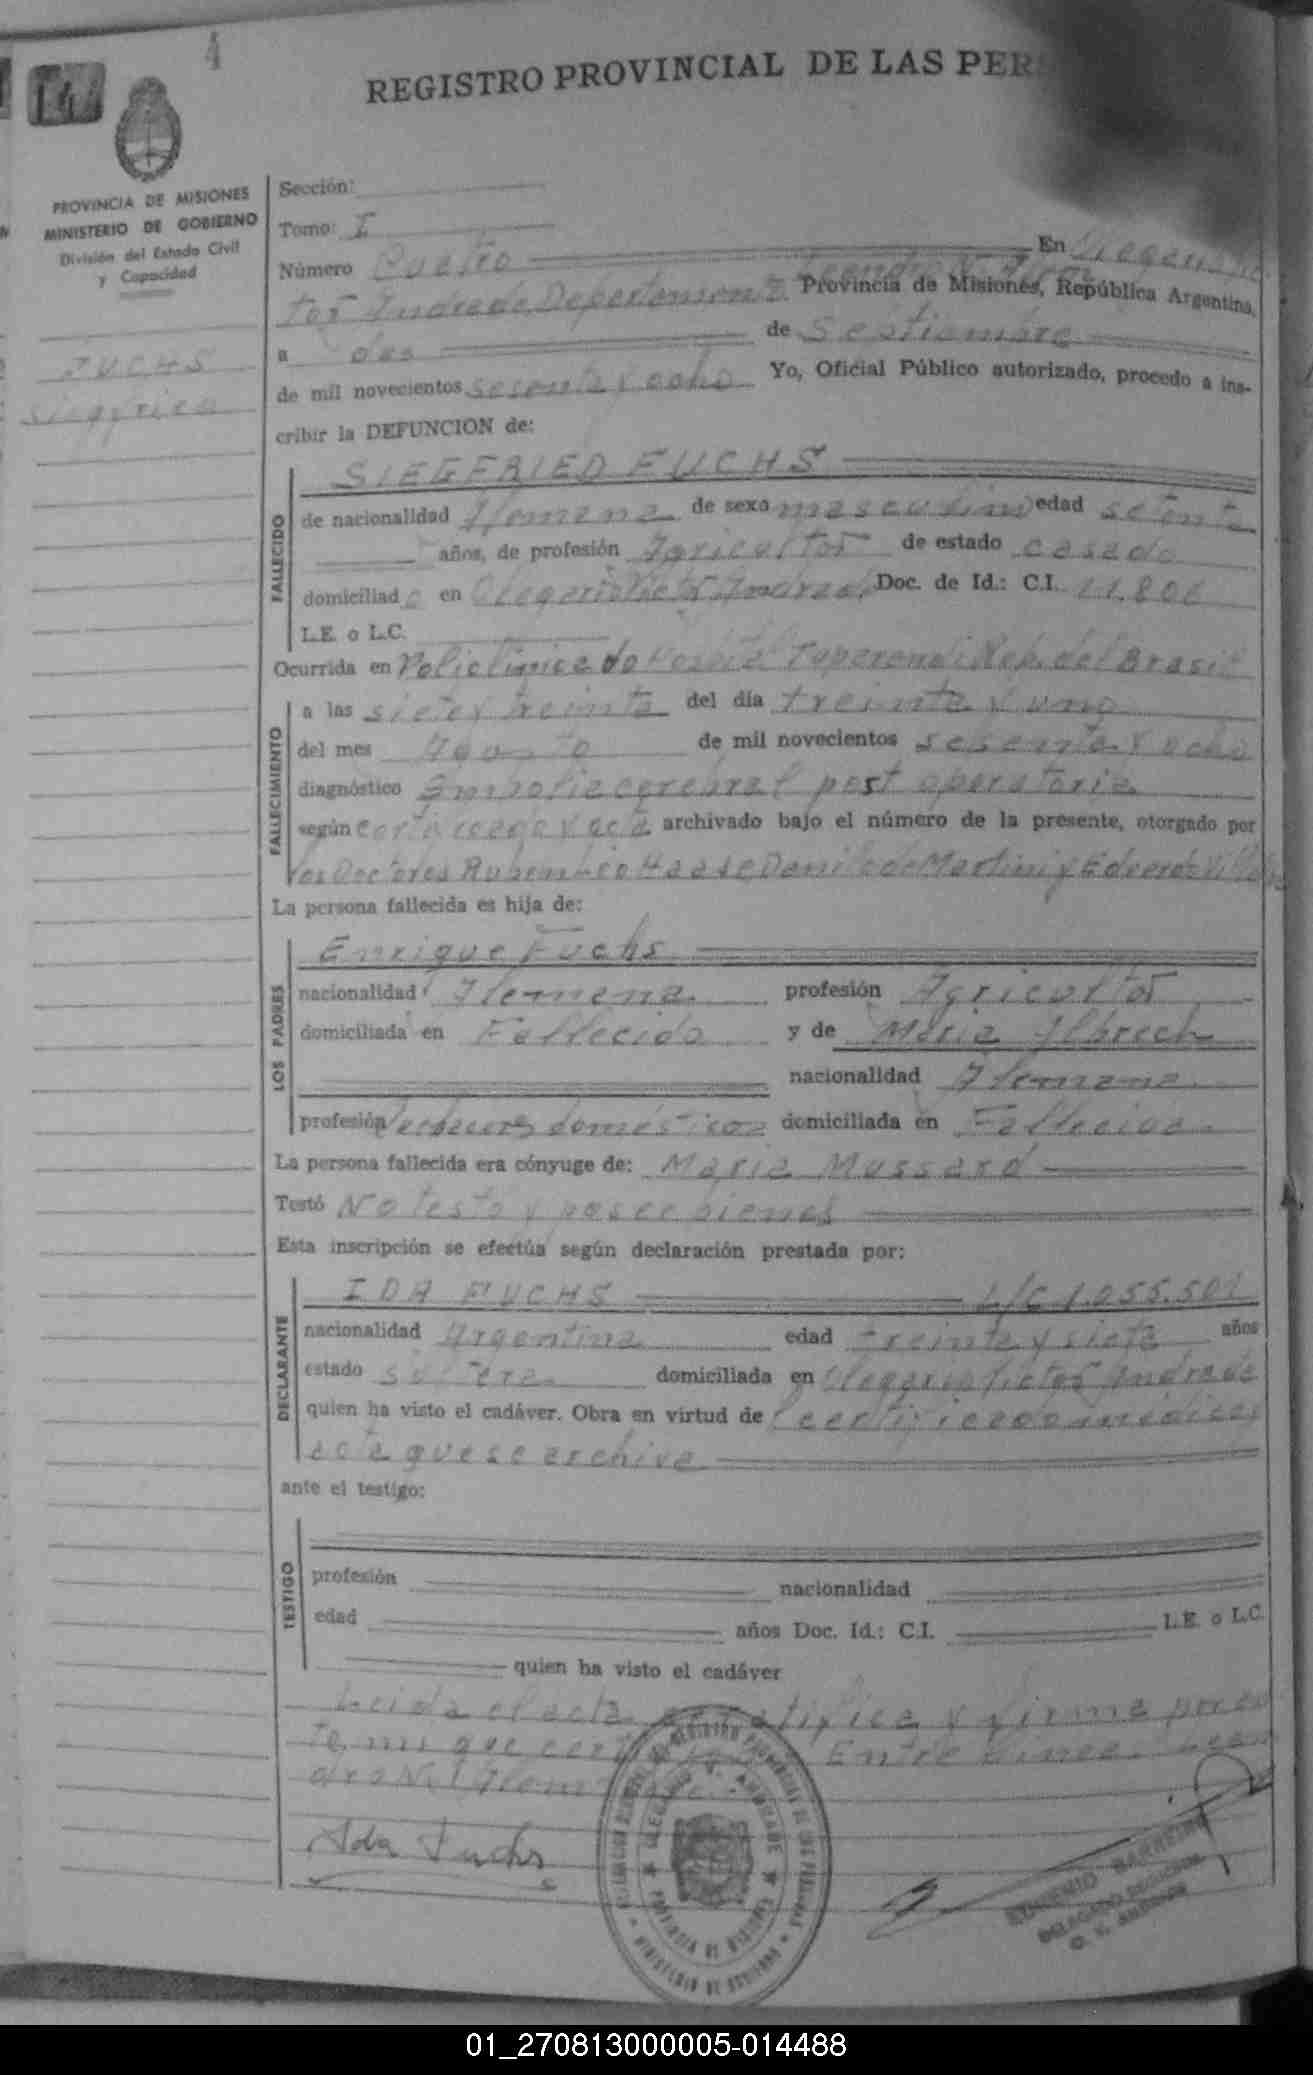 4
REGISTRO PROVINCIAL DE LAS PER
PROVINCIA DE MISIONES
MINISTERIO DE GOBIERNO
División del Estado Civil
y Capacidad
FUCHS
Siegfried
Sección:
Tomo: I
Número Cuatro En Olegario Vic
Leandro N. Alem
tor Andrade, Departamento Provincia de Misiones, República Argentina,
a dos de Septiembre
de mil novecientos sesenta y ocho Yo, Oficial Público autorizado, procedo a ins-
cribir la DEFUNCION de:
FALLECIDO
SIEGFRIED FUCHS
de nacionalidad Alemana de sexo masculino edad setenta
años, de profesión Agricultor de estado casado
domiciliado en Olegario Victor Andrade Doc. de Id.: C.I. 11.806
L.E. o L.C.
Ocurrida en Policlinica do Hospital Tuparendi Rep. del Brasil
FALLECIMIENTO
a las siete y treinta del día treinta y uno
del mes Agosto de mil novecientos sesenta y ocho
diagnóstico Embolia cerebral post operatoria
según certificado y acta archivado bajo el número de la presente, otorgado por
los Doctores Ruben Haase Danilo de Martini y
La persona fallecida es hija de:
LOS PADRES
Enrique Fuchs
nacionalidad Alemana profesión Agricultor
domiciliada en Fallecido y de Maria Albrech
nacionalidad Alemana
profesión quehaceres domésticos domiciliada en Fallecida
La persona fallecida era cónyuge de: Maria Mussard
Testó No testó y posee bienes
Esta inscripción se efectúa según declaración prestada por:
DECLARANTE
IDA FUCHS L/C 1.055.501
nacionalidad Argentina edad treinta y siete años
estado soltera domiciliada en Olegario Victor Andrade
quien ha visto el cadáver. Obra en virtud de certificado medico y
acta que se archiva
ante el testigo:
TESTIGO
profesión nacionalidad
edad años Doc. Id.: C.I. L.E. o L.C.
quien ha visto el cadáver
Leida el acta se ratifica y firma por an
te mi que certifico. Entre lineas: Lean
dro N. Alem
Ida Fuchs
OLEGARIO V. ANDRADE
PROVINCIA DE MISIONES
MINISTERIO DE GOBIERNO
EUGENIO BARREIRO
DELEGADO REGIONAL
O. V. ANDRADE
01_270813000005-014488